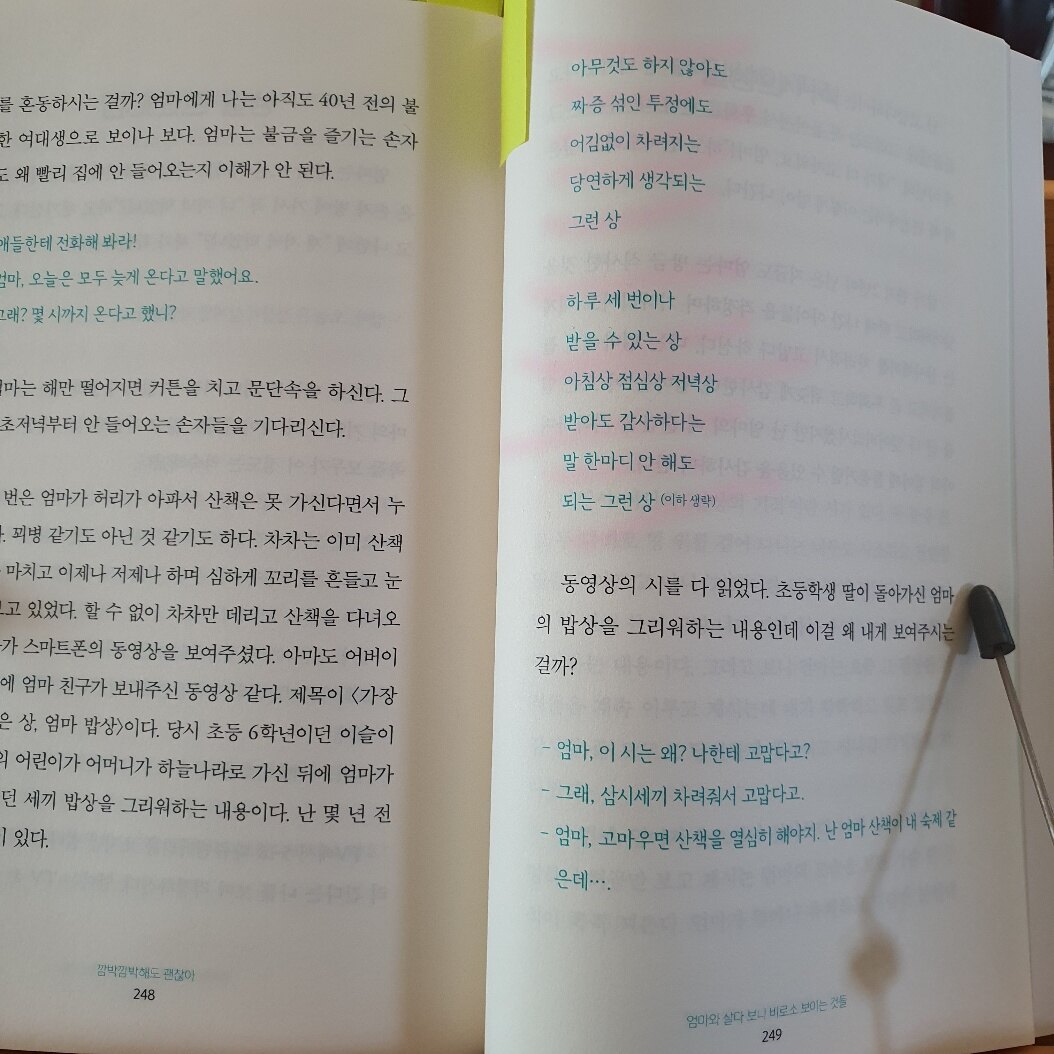 를 혼동하시는 걸까? 엄마에게 나는 아직도 40년 전의 불
한 여대생으로 보이나 보다. 엄마는 불금을 즐기는 손자
도 왜 빨리 집에 안 들어오는지 이해가 안 된다.
애들한테 전화해 봐라!
엄마, 오늘은 모두 늦게 온다고 말했어요.
그래? 몇 시까지 온다고 했니?
엄마는 해만 떨어지면 커튼을 치고 문단속을 하신다. 그
초저녁부터 안 들어오는 손자들을 기다리신다.
번은 엄마가 허리가 아파서 산책은 못 가신다면서 누
. 꾀병 같기도 아닌 것 같기도 하다. 차차는 이미 산책
마치고 이제나 저제나 하며 심하게 꼬리를 흔들고 눈
보고 있었다. 할 수 없이 차차만 데리고 산책을 다녀오
가 스마트폰의 동영상을 보여주셨다. 아마도 어버이
에 엄마 친구가 보내주신 동영상 같다. 제목이 〈가장
은 상, 엄마 밥상〉이다. 당시 초등 6학년이던 이슬이
의 어린이가 어머니가 하늘나라로 가신 뒤에 엄마가
던 세끼 밥상을 그리워하는 내용이다. 난 몇 년 전
이 있다.
깜박깜박해도 괜찮아
248
아무것도 하지 않아도
짜증 섞인 투정에도
어김없이 차려지는
당연하게 생각되는
그런 상
하루 세 번이나
받을 수 있는 상
아침상 점심상 저녁상
받아도 감사하다는
말 한마디 안 해도
되는 그런 상 (이하 생략)
동영상의 시를 다 읽었다. 초등학생 딸이 돌아가신 엄마
의 밥상을 그리워하는 내용인데 이걸 왜 내게 보여주시는
걸까?
- 엄마, 이 시는 왜? 나한테 고맙다고?
- 그래, 삼시세끼 차려줘서 고맙다고.
- 엄마, 고마우면 산책을 열심히 해야지. 난 엄마 산책이 내 숙제 같
은데….
엄마와 살다 보니 비로소 보이는 것들
249